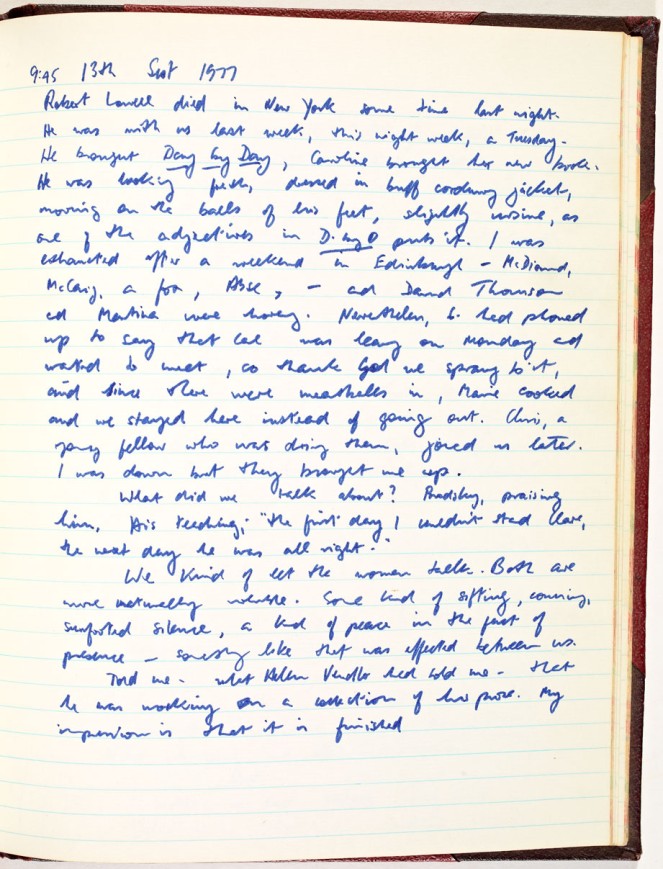 9:45 13th Sept 1977
Robert Lowell died in New York some time last night.
He was with us last week, this night week, a Tuesday.
He brought Day by Day, Caroline brought her new book.
He was looking fresh, dressed in buff corduroy jacket,
moving on the balls of his feet, slightly ursine, as
one of the adjectives in D. by D puts it. I was
exhausted after a weekend in Edinburgh - McDiarmid,
McCaig, a fox, Abse, - and David Thomson
and Martina were having. Nevertheless, C. had phoned
up to say that Cal was leaving on Monday and
wanted to meet, so thank God we sprang to it,
and since there were meatballs in, Marie cooked
and we stayed here instead of going out. Chris, a
young fellow who was driving them, joined us later.
I was down but they brought me up.
What did we talk about? praising
him. His teaching: "the first day I couldn't stand Clare,
the next day he was all right."
We kind of let the women talk. Both are
more naturally voluble. Some kind of sifting, cunning,
silence, a kind of peace in the fact of
presence - something like that was effected between us.
Told me - what Helen Vendler had told me - that
he was working on a collection of his prose. My
impression is that it is finished